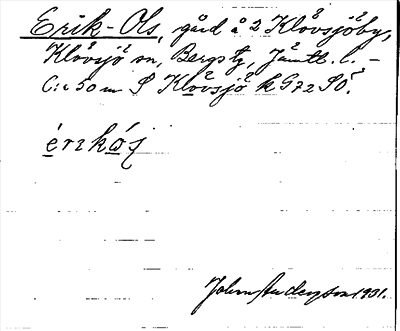 Erik-Ols, gård å 2 Klövsjöby,
Klövsjö sn, Bergs tg, Jämtl. l. –
C:a 50 m S Klövsjö k G72 SÖ.
érıkós
John Anderson 1931.